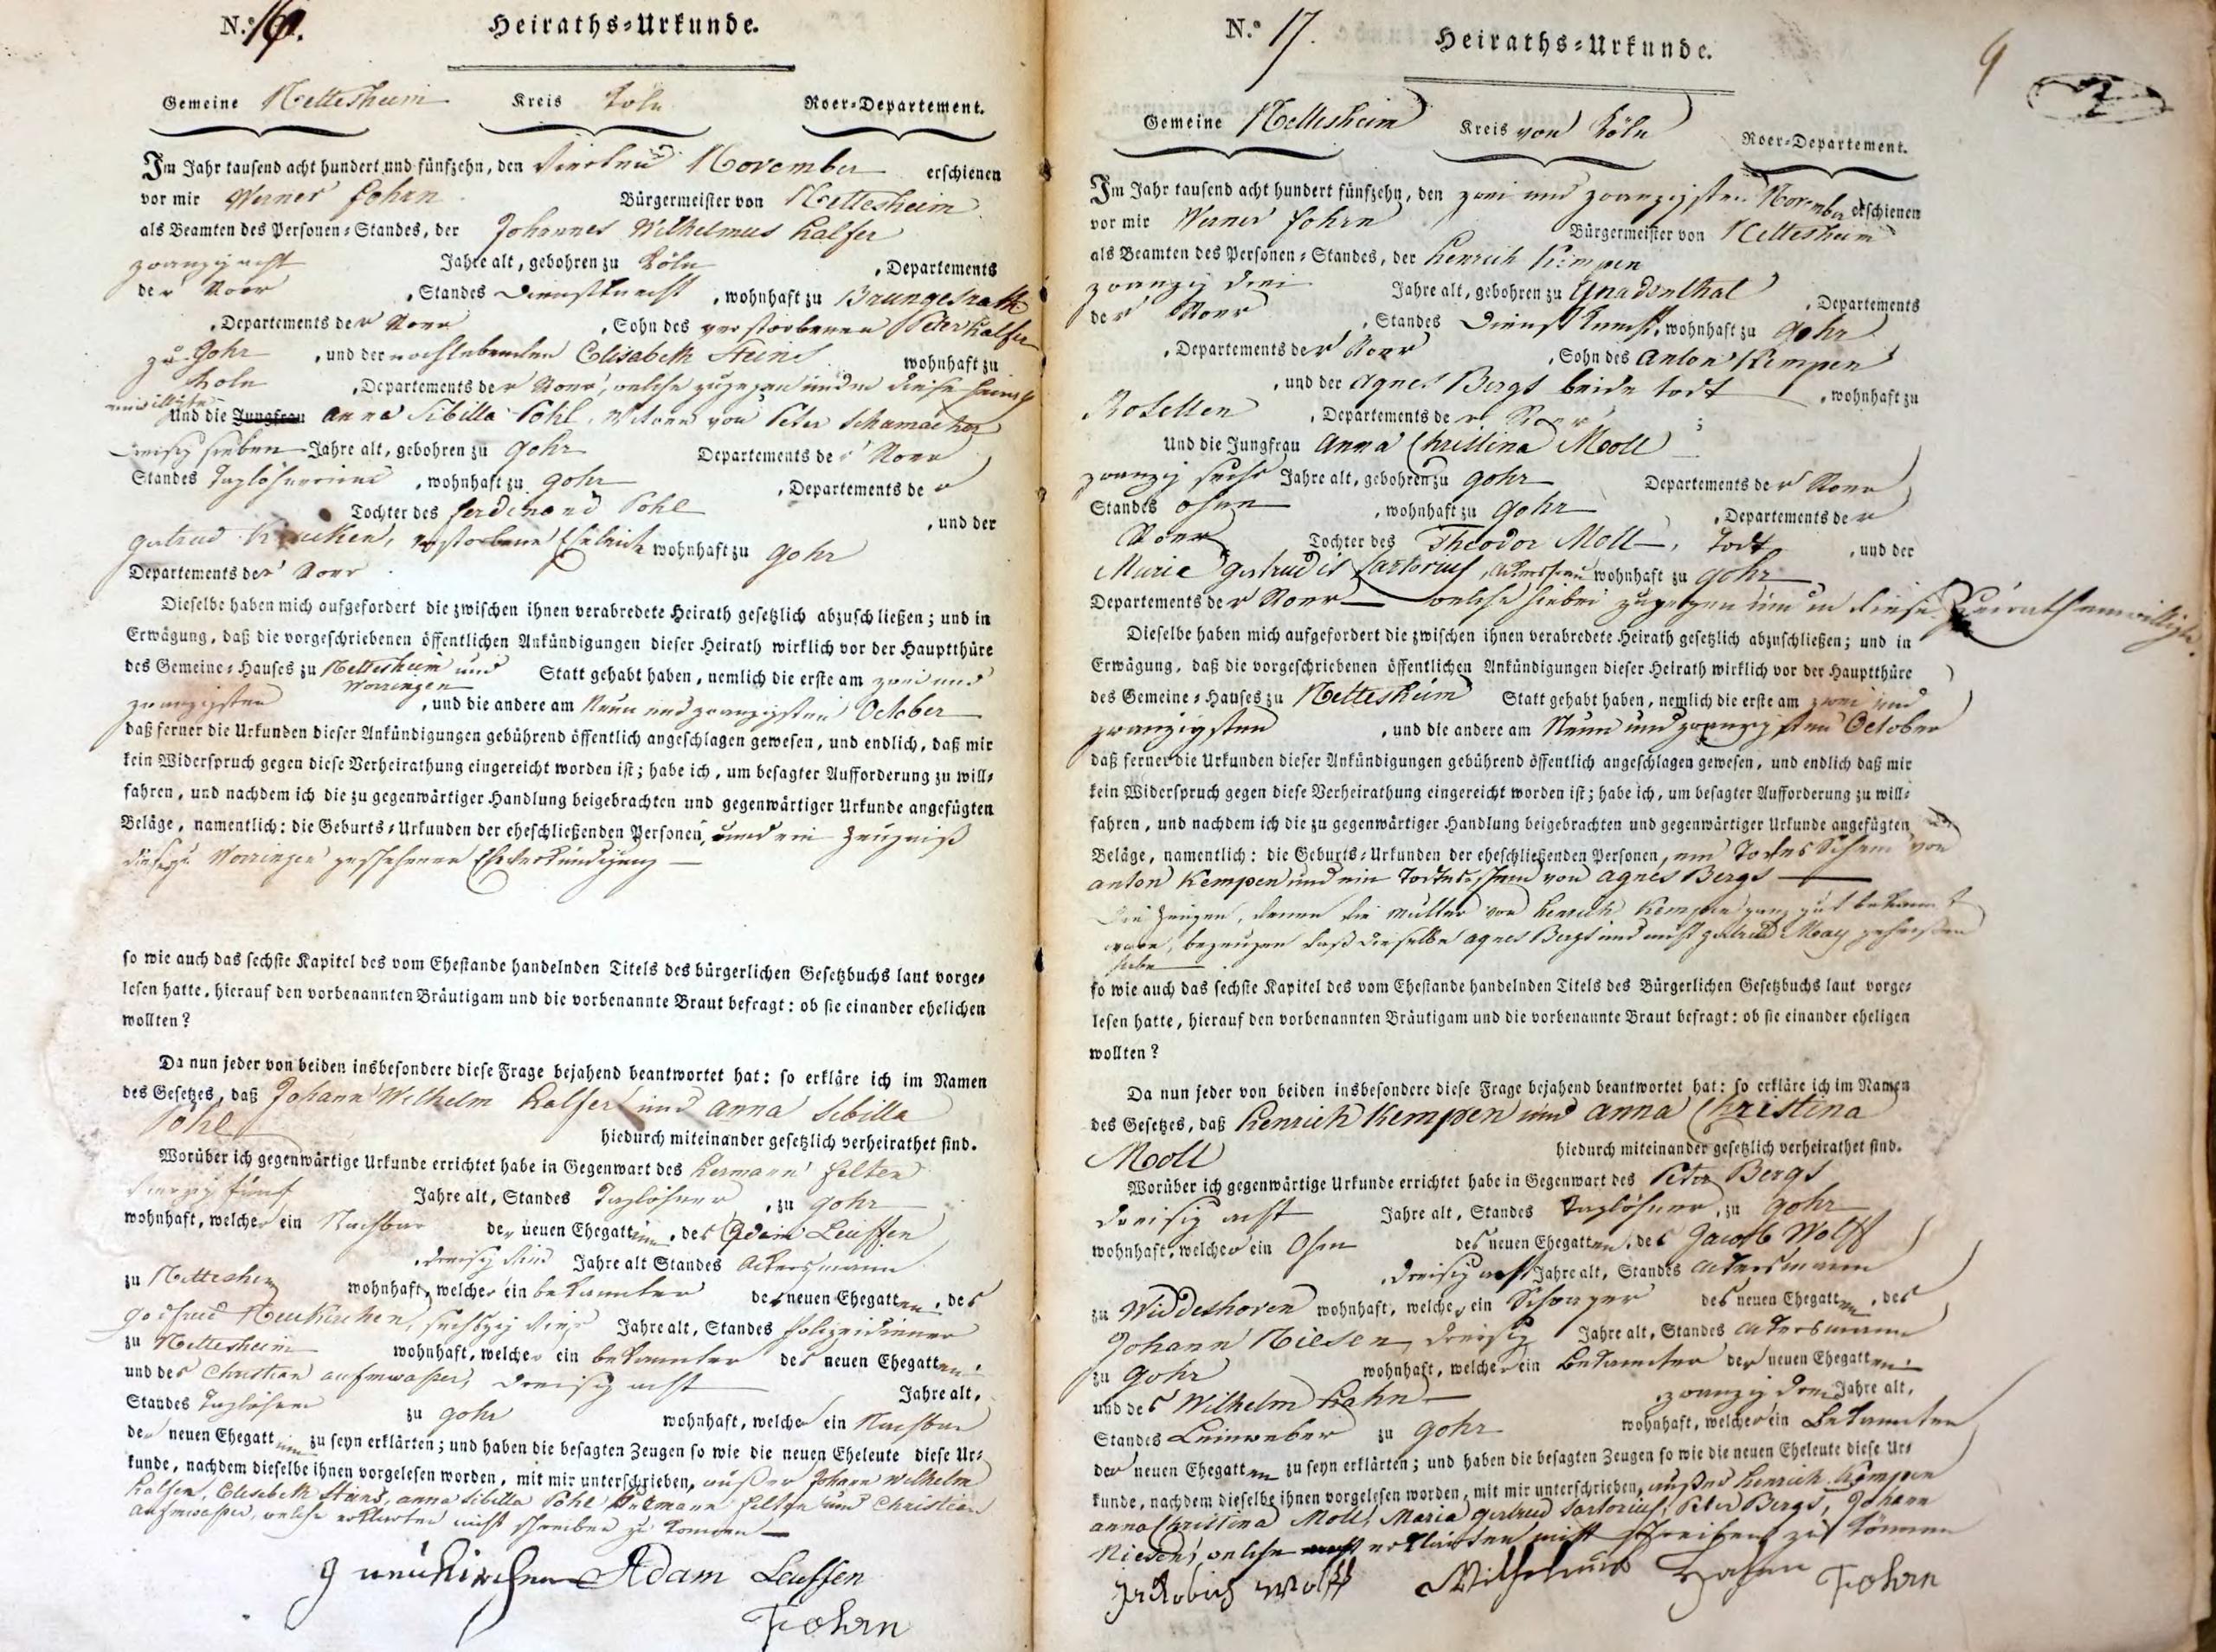 N.º 16.
Heiraths-Urkunde.
Gemeine Nettesheim Kreis Köln Roer-Departement.
Im Jahr tausend acht hundert und fünfzehn, den vierten November erschienen
vor mir Werner Fohrn Bürgermeister von Nettesheim
als Beamten des Personen-Standes, der Johannes Wilhelmus Kalfer
zwanzig acht Jahre alt, gebohren zu Köln, Departements
der Roer, Standes Dienstknecht, wohnhaft zu Brungesrath
, Departements der Roer, Sohn des verstorbenen Peter Kalfer
zu Gohr, und der noch lebenden Elisabeth Steins wohnhaft zu
Köln, Departements der Roer, welche zugegen und in diese Heirath
einwilligte
Und die Jungfrau Anna Sibilla Pohl, Witwe von Peter Schumacher
dreisig sieben Jahre alt, gebohren zu Gohr Departements der Roer
Standes Taglöhnerinn, wohnhaft zu Gohr, Departements der
Tochter des Ferdinand Pohl, und der
Gertrud verstorbene Eheleute wohnhaft zu Gohr
Departements der Roer
Dieselbe haben mich aufgefordert die zwischen ihnen verabredete Heirath gesetzlich abzuschließen; und in
Erwägung, daß die vorgeschriebenen öffentlichen Ankündigungen dieser Heirath wirklich vor der Hauptthüre
des Gemeine-Hauses zu Nettesheim und Worringen Statt gehabt haben, nemlich die erste am zwei und
zwanzigsten, und die andere am Neun und zwanzigsten October
daß ferner die Urkunden dieser Ankündigungen gebührend öffentlich angeschlagen gewesen, und endlich, daß mir
kein Widerspruch gegen diese Verheirathung eingereicht worden ist; habe ich, um besagter Aufforderung zu will-
fahren, und nachdem ich die zu gegenwärtiger Handlung beigebrachten und gegenwärtiger Urkunde angefügten
Beläge, namentlich: die Geburts-Urkunden der eheschließenden Personen, und ein Zeugniß
Worringen geschehener Eheverkündigung
so wie auch das sechste Kapitel des vom Ehestande handelnden Titels des bürgerlichen Gesetzbuchs laut vorge-
lesen hatte, hierauf den vorbenannten Bräutigam und die vorbenannte Braut befragt: ob sie einander ehelichen
wollten?
Da nun jeder von beiden insbesondere diese Frage bejahend beantwortet hat: so erkläre ich im Namen
des Gesetzes, daß Johann Wilhelm Kalfer und Anna Sibilla
Pohl hiedurch miteinander gesetzlich verheirathet sind.
Worüber ich gegenwärtige Urkunde errichtet habe in Gegenwart des Hermann Felten
vierzig fünf Jahre alt, Standes Taglöhner, zu Gohr
wohnhaft, welcher ein Nachbar der neuen Ehegattinn, des Adam Leuffen
, dreisig Jahre alt Standes Ackersmann
zu Nettesheim wohnhaft, welcher ein bekannter des neuen Ehegatten, des
Godfried Neukirchen, sechszig Jahre alt, Standes Polizeidiener
zu Nettesheim wohnhaft, welcher ein bekannter des neuen Ehegatten,
und des Christian Aufmwasser, dreisig acht Jahre alt,
Standes Taglöhner zu Gohr wohnhaft, welcher ein Nachbar
der neuen Ehegattinn zu seyn erklärten; und haben die besagten Zeugen so wie die neuen Eheleute diese Ur-
kunde, nachdem dieselbe ihnen vorgelesen worden, mit mir unterschrieben, außer Johann Wilhelm
Kalfer, Elisabeth Steins, Anna Sibilla Pohl, Hermann Felten und Christian
Aufmwasser, welche erklärten nicht schreiben zu können
G Neukirchen Adam Leuffen
Fohrn
N.º 17.
Heiraths-Urkunde.
9
2
Gemeine Nettesheim Kreis von Köln Roer-Departement.
Im Jahr tausend acht hundert fünfzehn, den zwei und zwanzigsten November erschienen
vor mir Werner Fohrn Bürgermeister von Nettesheim
als Beamten des Personen-Standes, der Henrich Kempen
zwanzig drei Jahre alt, gebohren zu Gnadenthal, Departements
der Roer, Standes Dienstknecht, wohnhaft zu Gohr
, Departements der Roer, Sohn des Anton Kempen
, und der Agnes Bergs beide todt, wohnhaft zu
Rosellen, Departements der Roer;
Und die Jungfrau Anna Christina Moll
zwanzig sechs Jahre alt, gebohren zu Gohr Departements der Roer
Standes ohne, wohnhaft zu Gohr, Departements der
Roer Tochter des Theodor Moll, todt, und der
Maria Gertrudis Sartorius, Ackersfrau wohnhaft zu Gohr
Departements der Roer welche hiebei zugegen und in diese Heirath einwilligte.
Dieselbe haben mich aufgefordert die zwischen ihnen verabredete Heirath gesetzlich abzuschließen; und in
Erwägung, daß die vorgeschriebenen öffentlichen Ankündigungen dieser Heirath wirklich vor der Hauptthüre
des Gemeine-Hauses zu Nettesheim Statt gehabt haben, nemlich die erste am zwei und
zwanzigsten, und die andere am Neun und zwanzigsten October
daß ferner die Urkunden dieser Ankündigungen gebührend öffentlich angeschlagen gewesen, und endlich daß mir
kein Widerspruch gegen diese Verheirathung eingereicht worden ist; habe ich, um besagter Aufforderung zu will-
fahren, und nachdem ich die zu gegenwärtiger Handlung beigebrachten und gegenwärtiger Urkunde angefügten
Beläge, namentlich: die Geburts-Urkunden der eheschließenden Personen, ein Todtes Schein von
Anton Kempen und ein Todtesschein von Agnes Bergs
Die Zeugen, denen die Mutter von Henrich Kempen ganz gut bekannt
ware, bezeugen daß dieselbe Agnes Bergs und nicht Gertrud May geheißen
habe
so wie auch das sechste Kapitel des vom Ehestande handelnden Titels des Bürgerlichen Gesetzbuchs laut vorge-
lesen hatte, hierauf den vorbenannten Bräutigam und die vorbenannte Braut befragt: ob sie einander eheligen
wollten?
Da nun jeder von beiden insbesondere diese Frage bejahend beantwortet hat: so erkläre ich im Namen
des Gesetzes, daß Henrich Kempen und Anna Christina
Moll hiedurch miteinander gesetzlich verheirathet sind.
Worüber ich gegenwärtige Urkunde errichtet habe in Gegenwart des Peter Bergs
dreisig acht Jahre alt, Standes Taglöhner, zu Gohr
wohnhaft, welcher ein Ohm des neuen Ehegatten, des Jacob Wolff
, dreisig acht Jahre alt, Standes Ackersmann
zu Widdeshoven wohnhaft, welcher ein Schwager des neuen Ehegatten, des
Johann Niesen, dreisig Jahre alt, Standes Ackersmann
zu Gohr wohnhaft, welcher ein Bekannter der neuen Ehegatten
und des Wilhelm Hahn, zwanzig drei Jahre alt,
Standes Leinweber zu Gohr wohnhaft, welcher ein Bekannter
der neuen Ehegatten zu seyn erklärten; und haben die besagten Zeugen so wie die neuen Eheleute diese Ur-
kunde, nachdem dieselbe ihnen vorgelesen worden, mit mir unterschrieben, außer Henrich Kempen
Anna Christina Moll, Maria Gertrud Sartorius, Peter Bergs, Johann
Niesen, welche erklärten nicht schreiben zu können
Jakobus Wolff Wilhelmus Hahn Fohrn